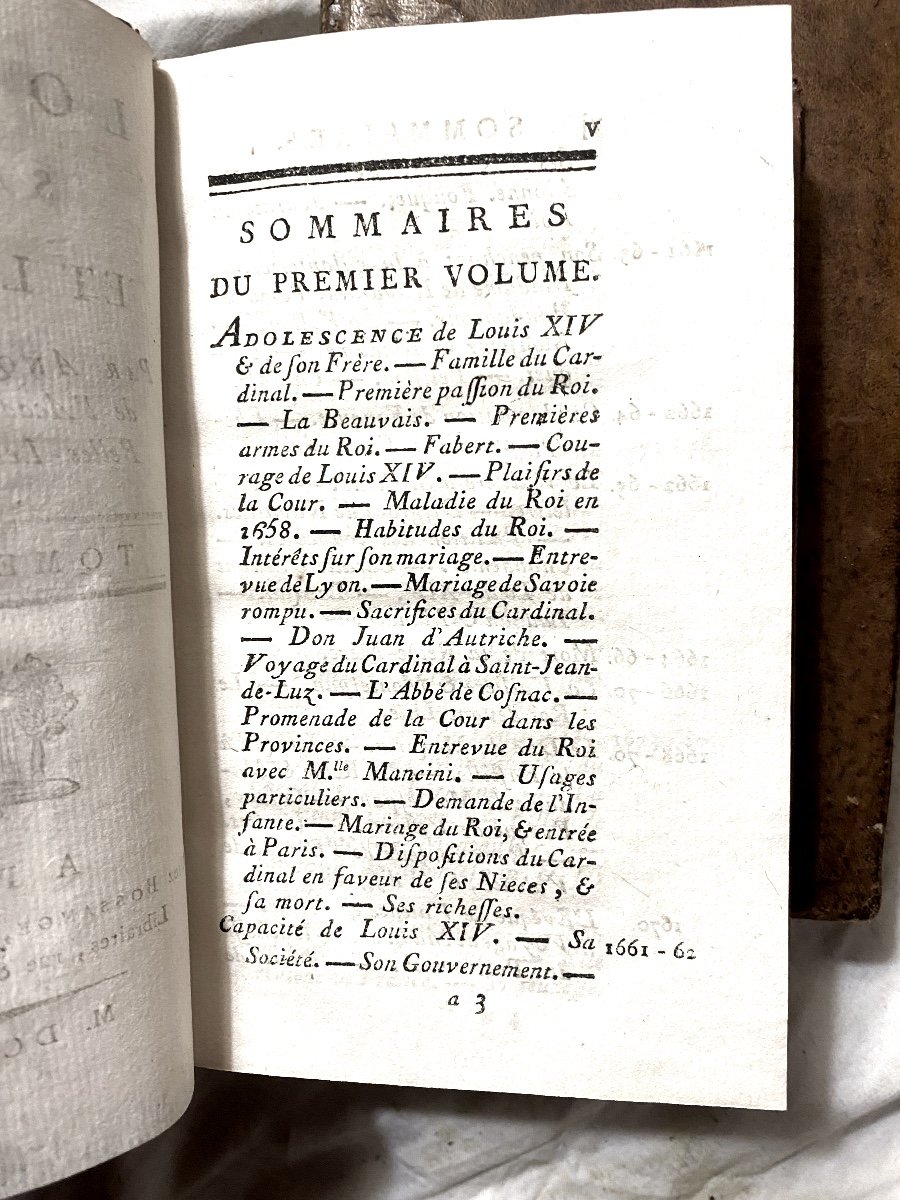 v
SOMMAIRES
DU PREMIER VOLUME.
ADOLESCENCE de Louis XIV
& de ſon Frère. — Famille du Car-
dinal. — Première paſſion du Roi.
— La Beauvais. — Premières
armes du Roi. — Fabert. — Cou-
rage de Louis XIV. — Plaiſirs de
la Cour. — Maladie du Roi en
1658. — Habitudes du Roi. —
Intérêts ſur ſon mariage. — Entre-
vue de Lyon. — Mariage de Savoie
rompu. — Sacrifices du Cardinal.
— Don Juan d'Autriche. —
Voyage du Cardinal à Saint-Jean-
de-Luz. — L'Abbé de Coſnac. —
Promenade de la Cour dans les
Provinces. — Entrevue du Roi
avec M.lle Mancini. — Uſages
particuliers. — Demande de l'In-
fante. — Mariage du Roi, & entrée
à Paris. — Diſpoſitions du Car-
dinal en faveur de ſes Nieces, &
ſa mort. — Ses richeſſes.
Capacité de Louis XIV. — Sa 1661 - 62
Société. — Son Gouvernement. —
a 3